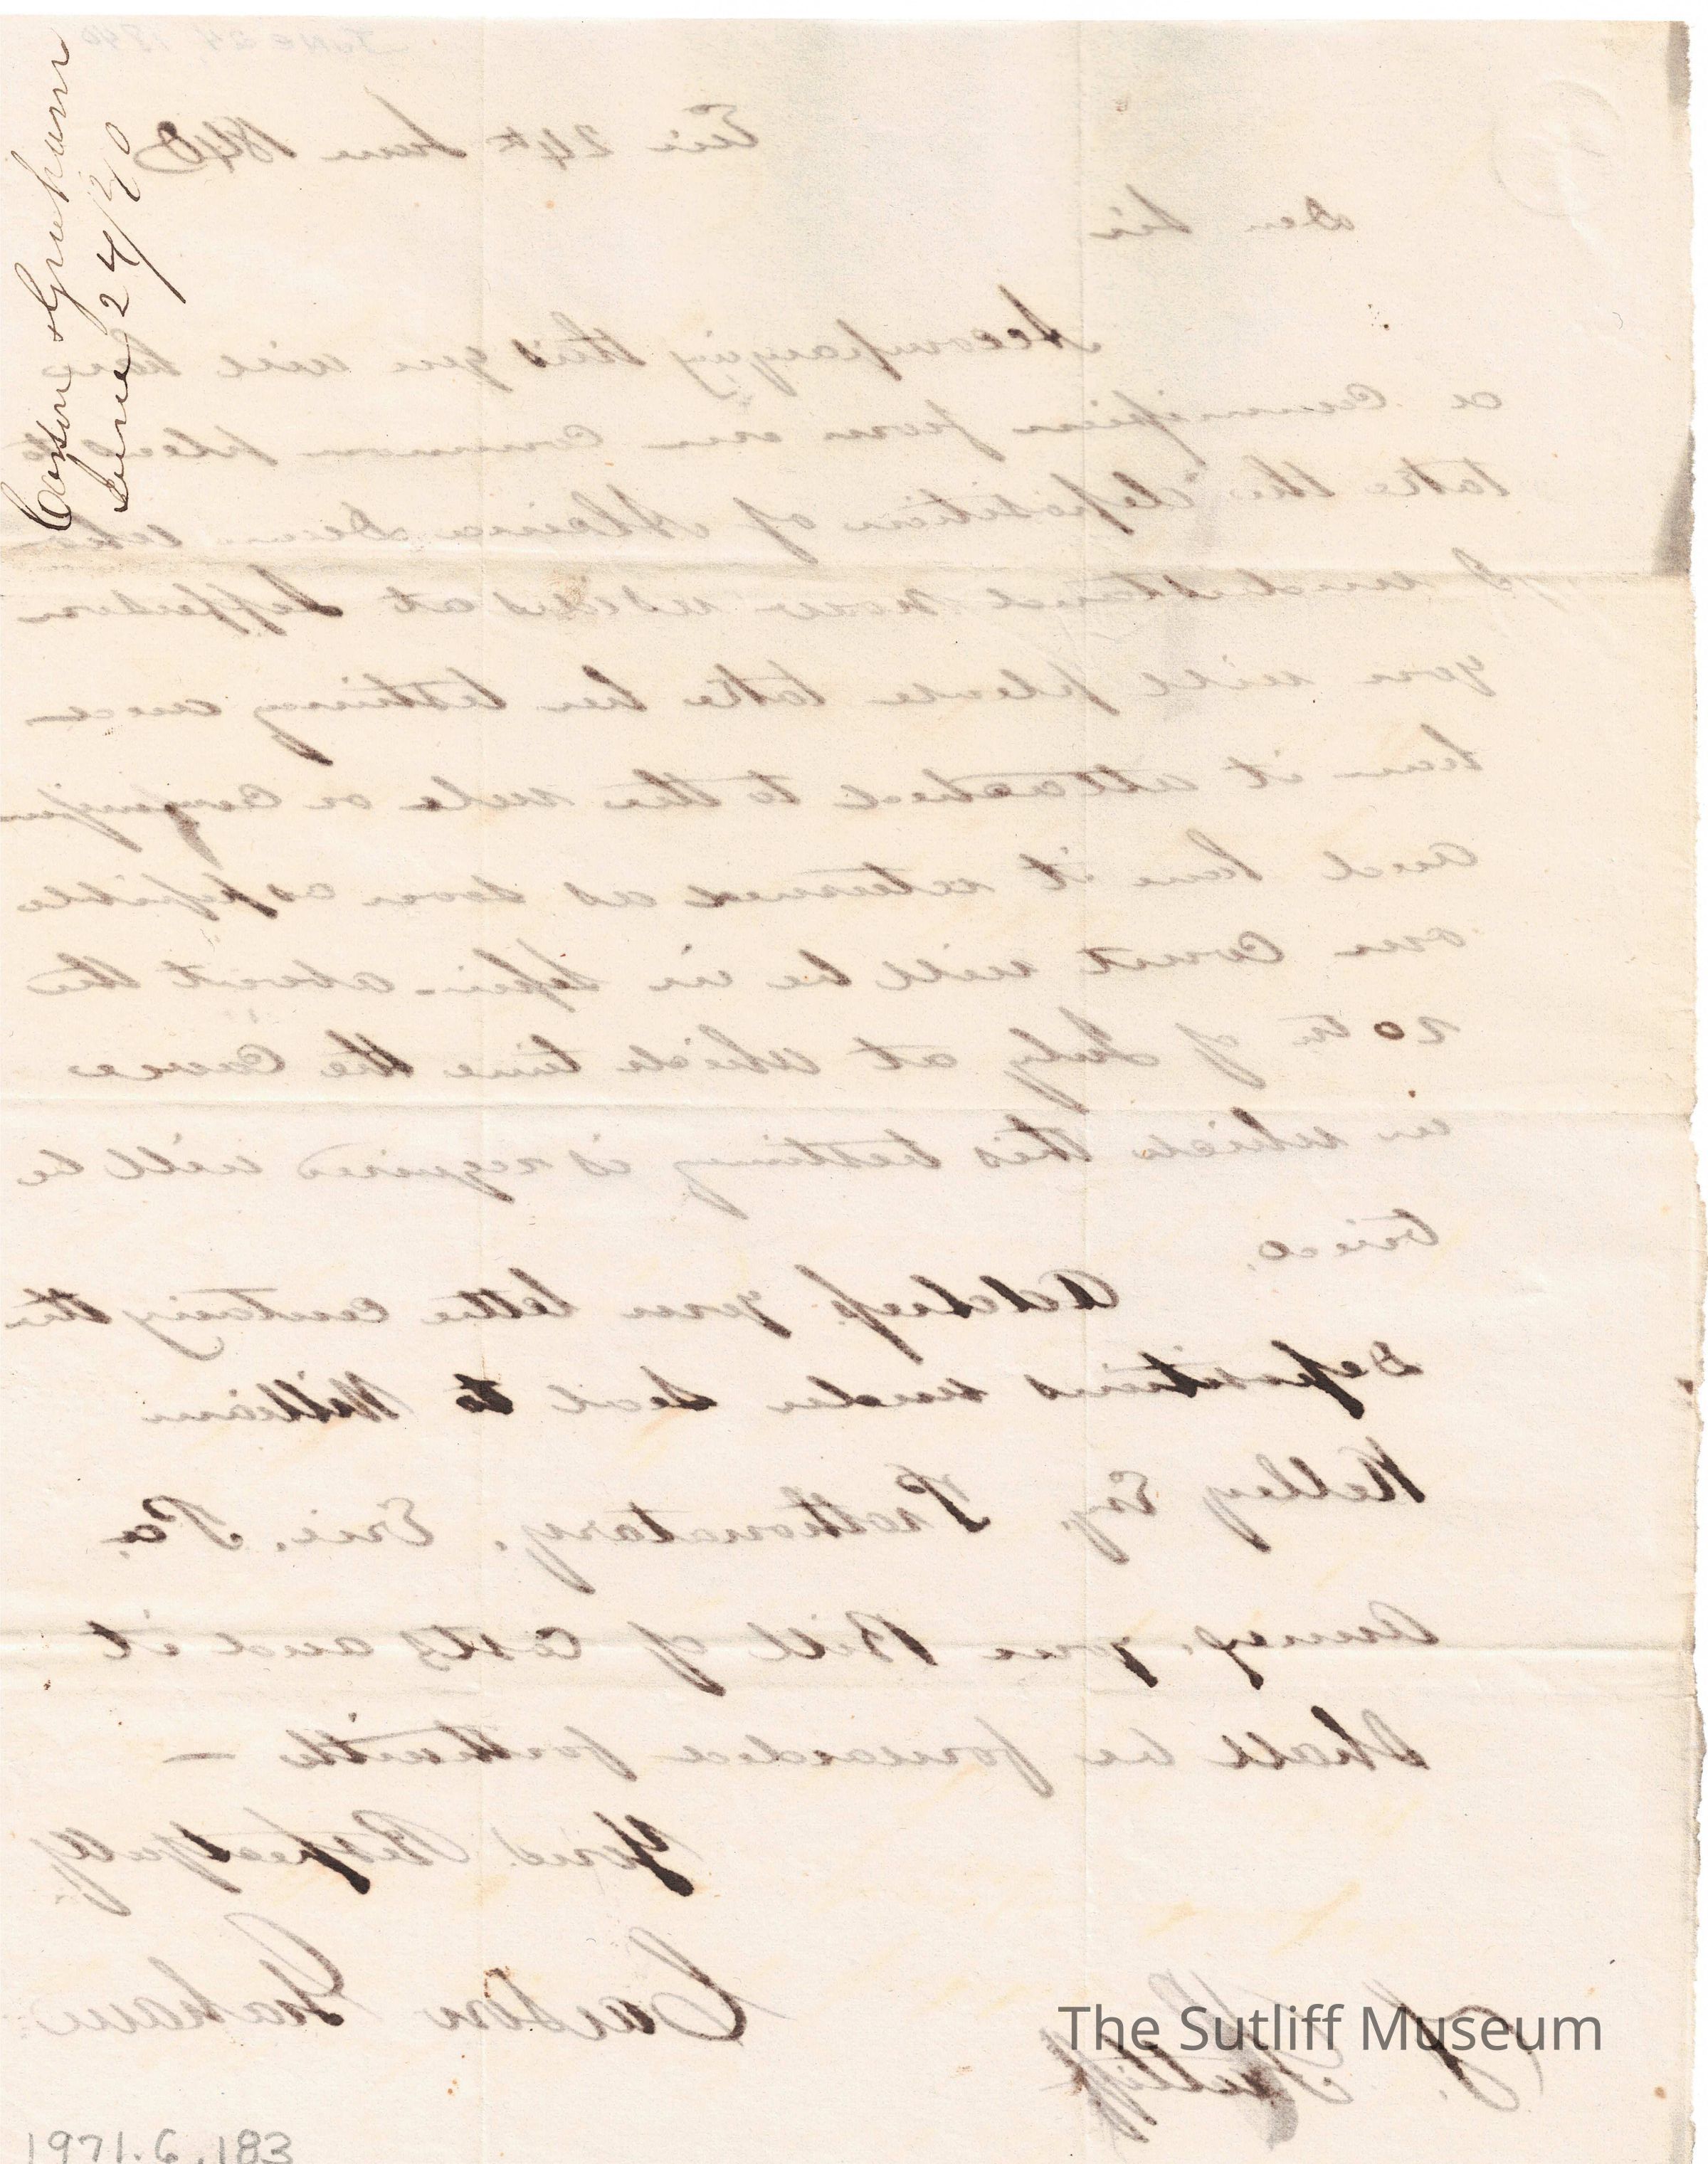 Carson & Graham
June 24/40
June 24 1840
Erie 24th June 1840
Dear Sir
Accompanying this you will have
a Commission from our Common pleas to
take the deposition of who
I understand now resides at Jefferson
you will please take her testimony and
have it attached to the rule or Commission
and have it returned as soon as possible
our Court will be in session about the
20th of July at which time the Cause
in which this testimony is required will be
tried.
Address your letter containing the
Depositions under seal to William
Kelley Esq. Prothonotary, Erie, Pa.
Annex your Bill of Costs and it
shall be forwarded forthwith —
Yours Respectfully
Carson Graham
Sutliff
The Sutliff Museum
1971.6.183